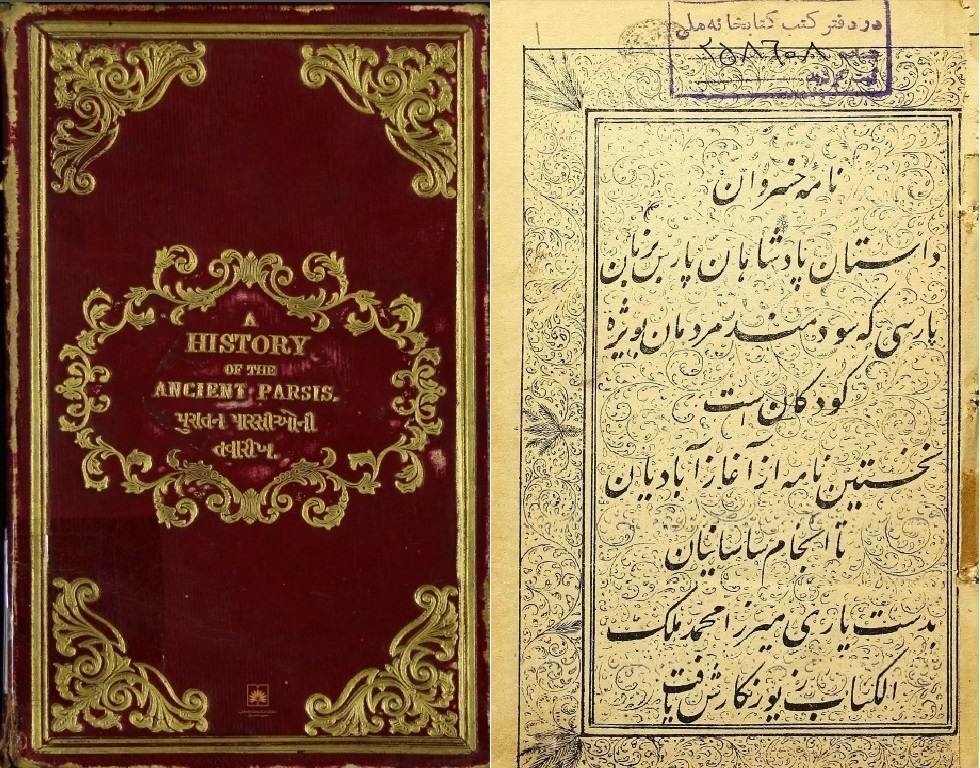 A
HISTORY
OF THE
ANCIENT PARSIS.
પુરાતન પારસીઓની
તવારીખ.
در دفتر کتب کتابخانه ملی
۲۵۸۶۰۸
نامهٔ خسروان
داستان پادشاهان پارس بزبان
پارسی که سودمند مردمان بویژه
کودکان است
نخستین نامه از آغاز آبادیان
تا انجام ساسانیان
بدستیاری میرزا محمد ملک
الکتاب زیور نگارش یافت